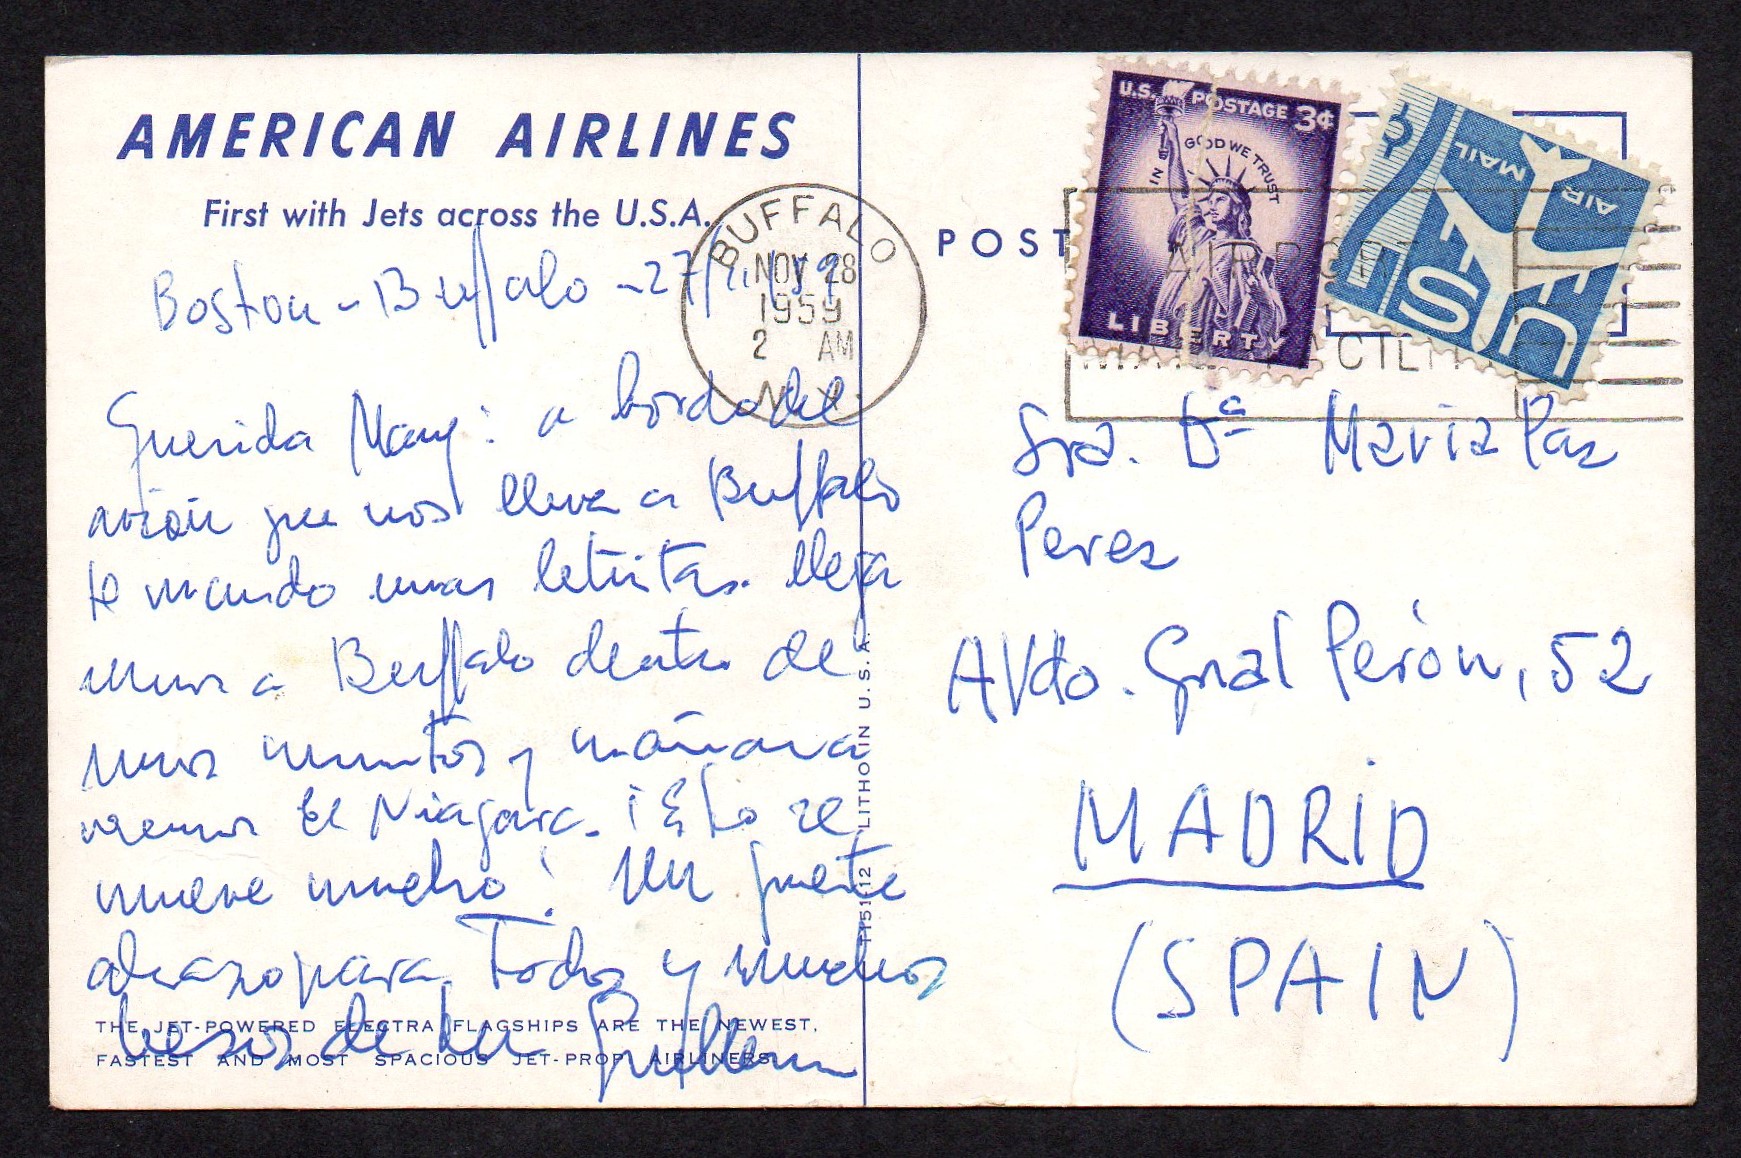 AMERICAN AIRLINES
First with Jets across the U.S.A.
Boston - Buffalo - 27/11/59
Querida Mary: a bordo del
avión que nos lleva a Buffalo
te mando unas letritas. Llega
mos a Buffalo dentro de
unos minutos y mañana
vemos el Niágara. ¡Esto se
mueve mucho! Un fuerte
abrazo para Todos y muchos
besos de tu Guillermo
THE JET-POWERED ELECTRA FLAGSHIPS ARE THE NEWEST,
FASTEST AND MOST SPACIOUS JET-PROP AIRLINERS.
LITHO IN U.S.A.
BUFFALO
NOV 28
1959
2 AM
N.Y.
POST
U.S. POSTAGE 3¢
IN GOD WE TRUST
LIBERTY
AIR MAIL
USA
AIRPORT
Sra. Dª Maria Paz
Perez
AVda. Gral Perón, 52
MADRID
(SPAIN)